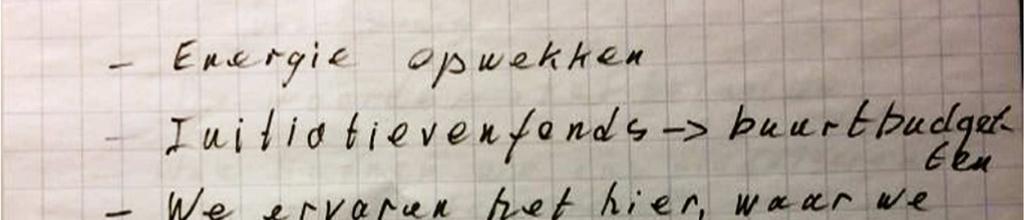 - Energie opwekken
- Initiatievenfonds -> buurtbudget-
ten
- We ervaren het hier, waar we